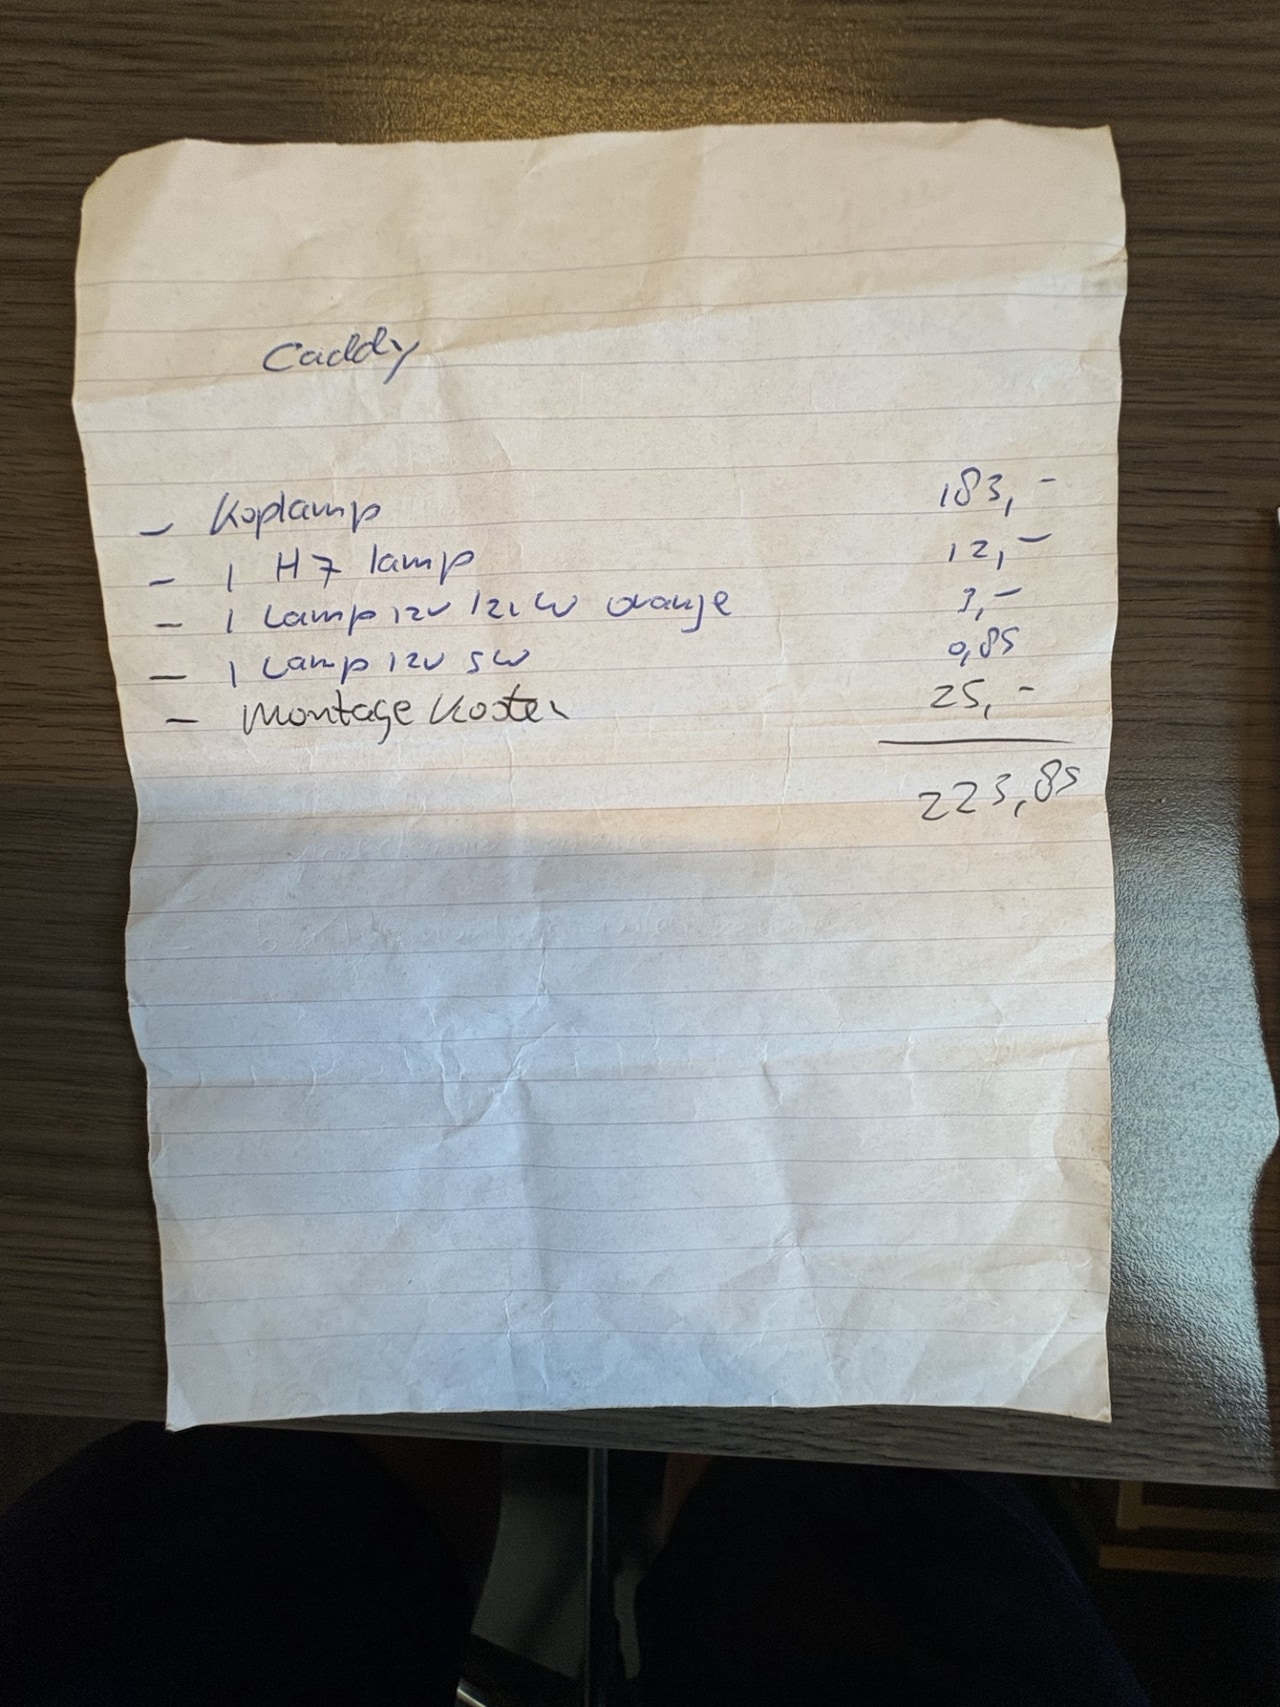 Caddy
- Koplamp 183,-
- 1 H7 lamp 12,-
- 1 Lamp 12V 21W oranje 3,-
- 1 Lamp 12V 5W 0,85
- Montage Kosten 25,-
223,85